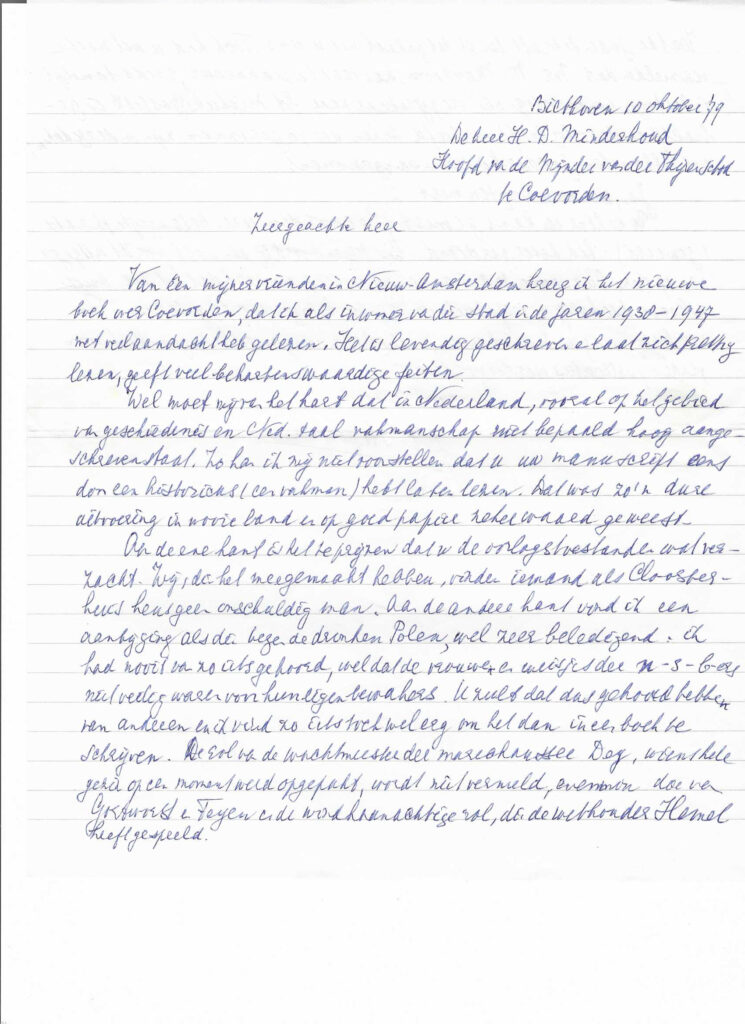 Bilthoven 10 oktober '79
De heer H. D. Minderhoud
Hoofd van de Mijnder van der Thijnenschool
te Coevorden.
Zeergeachte heer
Van één mijner vrienden in Nieuw-Amsterdam kreeg ik het nieuwe
boek over Coevorden, dat ik als inwoner van die stad in de jaren 1938-1947
met veel aandacht heb gelezen. Het is levendig geschreven en laat zich prettig
lezen, geeft veel behartenswaardige feiten.
Wel moet mij van het hart dat in Nederland, vooral op het gebied
van geschiedenis en Ned. taal vakmanschap niet bepaald hoog aange-
schreven staat. Zo kan ik mij niet voorstellen dat u uw manuscrift eens
door een historicus (een vakman) hebt laten lezen. Dat was zo'n dure
uitvoering in mooie band en op goed papier zeker waard geweest.
Aan de ene kant is het te prijzen dat u de oorlogstoestanden wat ver-
zacht. Wij, die het meegemaakt hebben, vinden iemand als Clooster-
huis heus geen onschuldig man. Aan de andere kant vind ik een
aantijging als die tegen de dronken Polen, wel zeer beledigend. Ik
had nooit van zo iets gehoord, wel dat de vrouwen en meisjes der n-s-b-ers
niet veilig waren voor hun eigen bewakers. U zult dat dus gehoord hebben
van anderen en ik vind zo iets toch wel erg om het dan in een boek te
schrijven. De rol van de wachtmeester der marechaussee Dog, wiens hele
gezin op een moment werd opgepakt, wordt niet vermeld, evenmin die van
en Feyen en de waakzaamachtige rol, die de wethouder Hemel
heeft gespeeld.